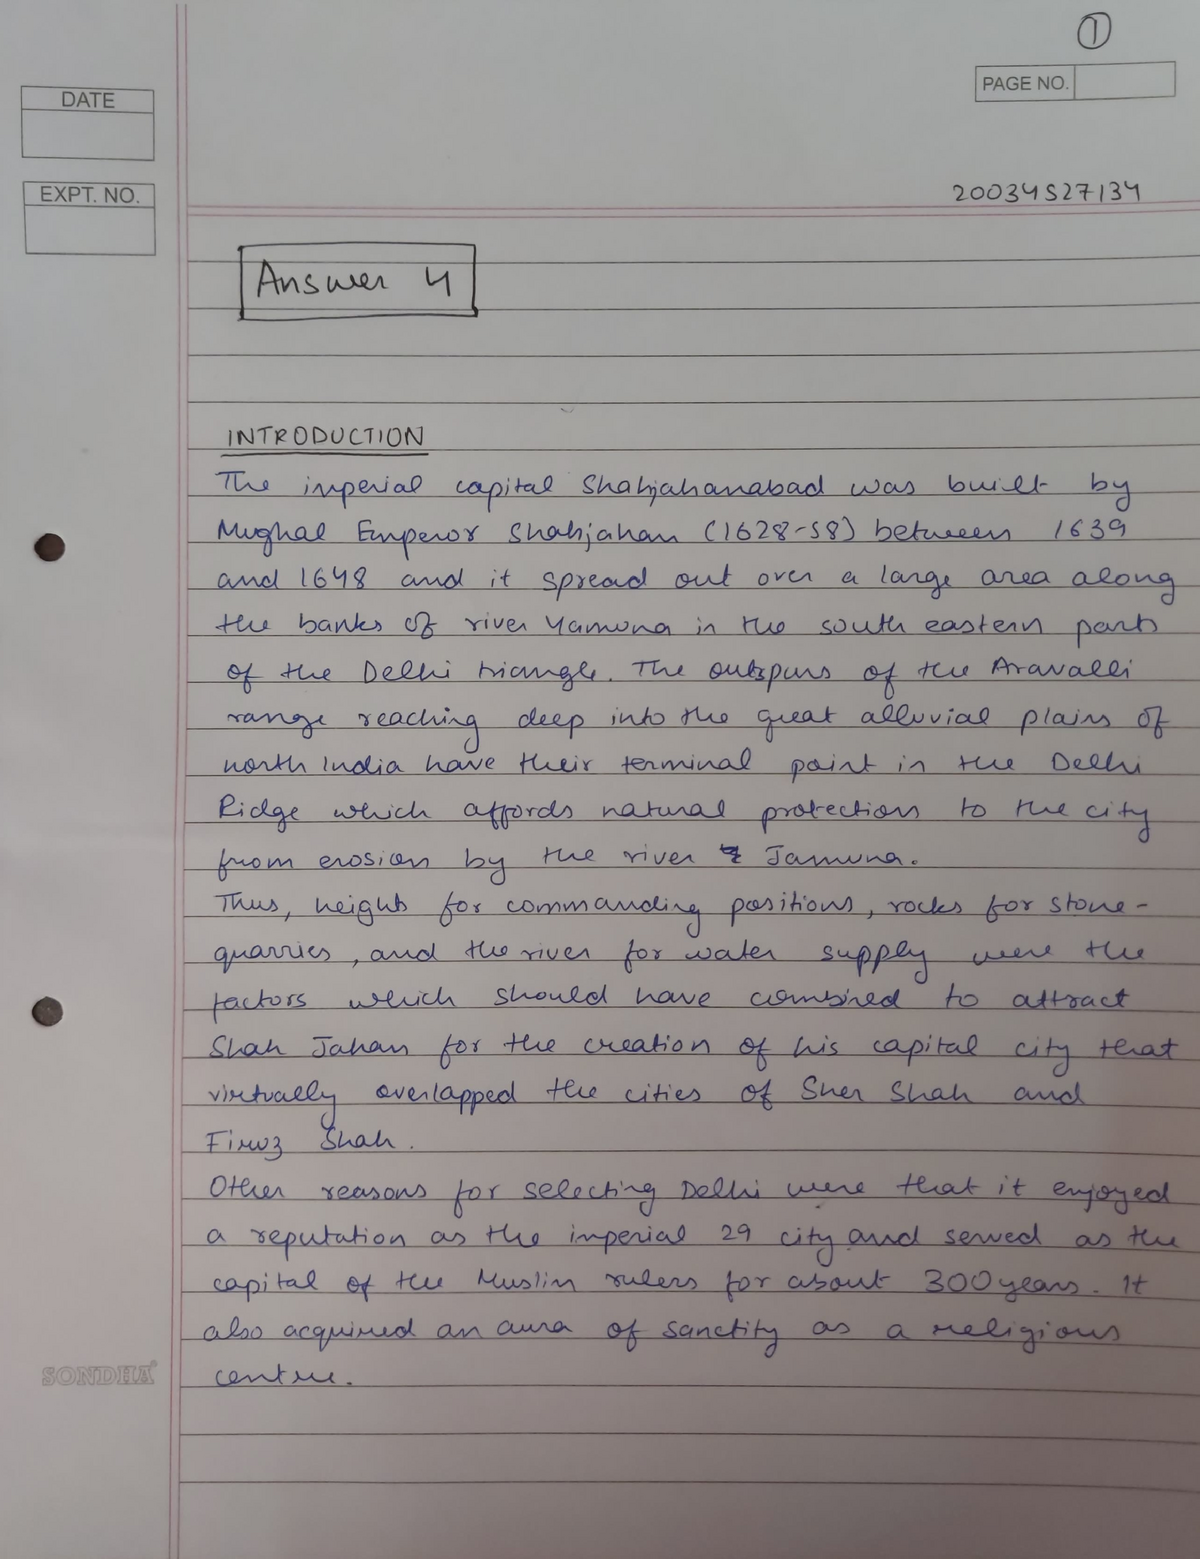 ①
PAGE NO.
DATE
EXPT. NO.
20034527134
Answer 4
INTRODUCTION
The imperial capital Shahjahanabad was built by
Mughal Emperor Shahjahan (1628-58) between 1639
and 1648 and it spread out over a large area along
the banks of river Yamuna in the south eastern parts
of the Delhi triangle. The outspurs of the Aravalli
range reaching deep into the great alluvial plains of
north India have their terminal point in the Delhi
Ridge which affords natural protection to the city
from erosion by the river Jamuna.
Thus, heights for commanding positions, rocks for stone-
quarries, and the river for water supply were the
factors which should have combined to attract
Shah Jahan for the creation of his capital city that
virtually overlapped the cities of Sher Shah and
Firuz Shah.
Other reasons for selecting Delhi were that it enjoyed
a reputation as the imperial 29 city and served as the
capital of the Muslim rulers for about 300 years. It
also acquired an aura of sanctity as a religious
centre.
SONDHA